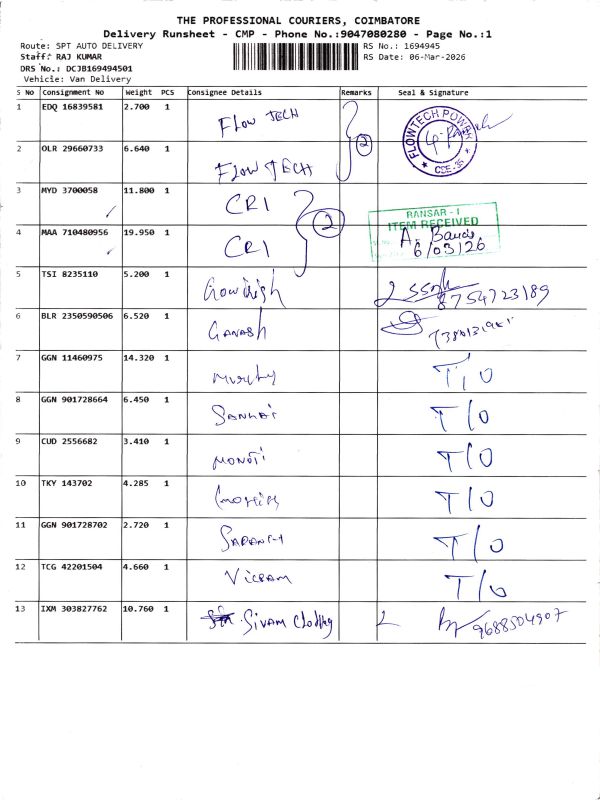 THE PROFESSIONAL COURIERS, COIMBATORE
Delivery Runsheet - CMP - Phone No.:9047080280 - Page No.:1
Route: SPT AUTO DELIVERY
RS No.: 1694945
Staff: RAJ KUMAR
RS Date: 06-Mar-2026
DRS No.: DCJB169494501
Vehicle: Van Delivery
S No Consignment No Weight PCS Consignee Details Remarks Seal & Signature
1 EDQ 16839581 2.700 1 FLOW TECH
2 OLR 29660733 6.640 1 FLOW TECH
2
FLOWTECH POWER
CBE-35
3 MYD 3700058 11.800 1 CRI
4 MAA 710480956 19.950 1 CRI
2
RANSAR - I
ITEM RECEIVED
6/03/26
5 TSI 8235110 5.200 1 8754723189
6 BLR 2350590506 6.520 1 GANASH
7 GGN 11460975 14.320 1 Murthy T/O
8 GGN 901728664 6.450 1 T/O
9 CUD 2556682 3.410 1 T/O
10 TKY 143702 4.285 1 T/O
11 GGN 901728702 2.720 1 T/O
12 TCG 42201504 4.660 1 VICRAM T/O
13 IXM 303827762 10.760 1 SIVAM 9688504907